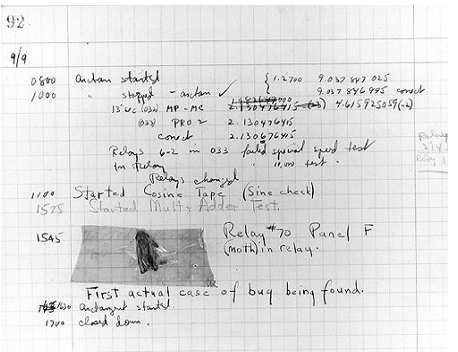 92
9/9
0800 Antan started
1000 " stopped - antan ✓ { 1.2700 9.037 847 025
9.037 846 995 correct
13" UC (032) MP - MC 2.130476415 (-3) 4.615925059(-2)
(033) PRO 2 2.130476415
correct 2.130676415
Relays 6-2 in 033 failed special speed test
in relay " 10,000 test .
Relays changed
1100 Started Cosine Tape (Sine check)
1525 Started Mult + Adder Test.
1545 Relay #70 Panel F
(moth) in relay.
First actual case of bug being found.
1630 Antangent started.
1700 closed down .